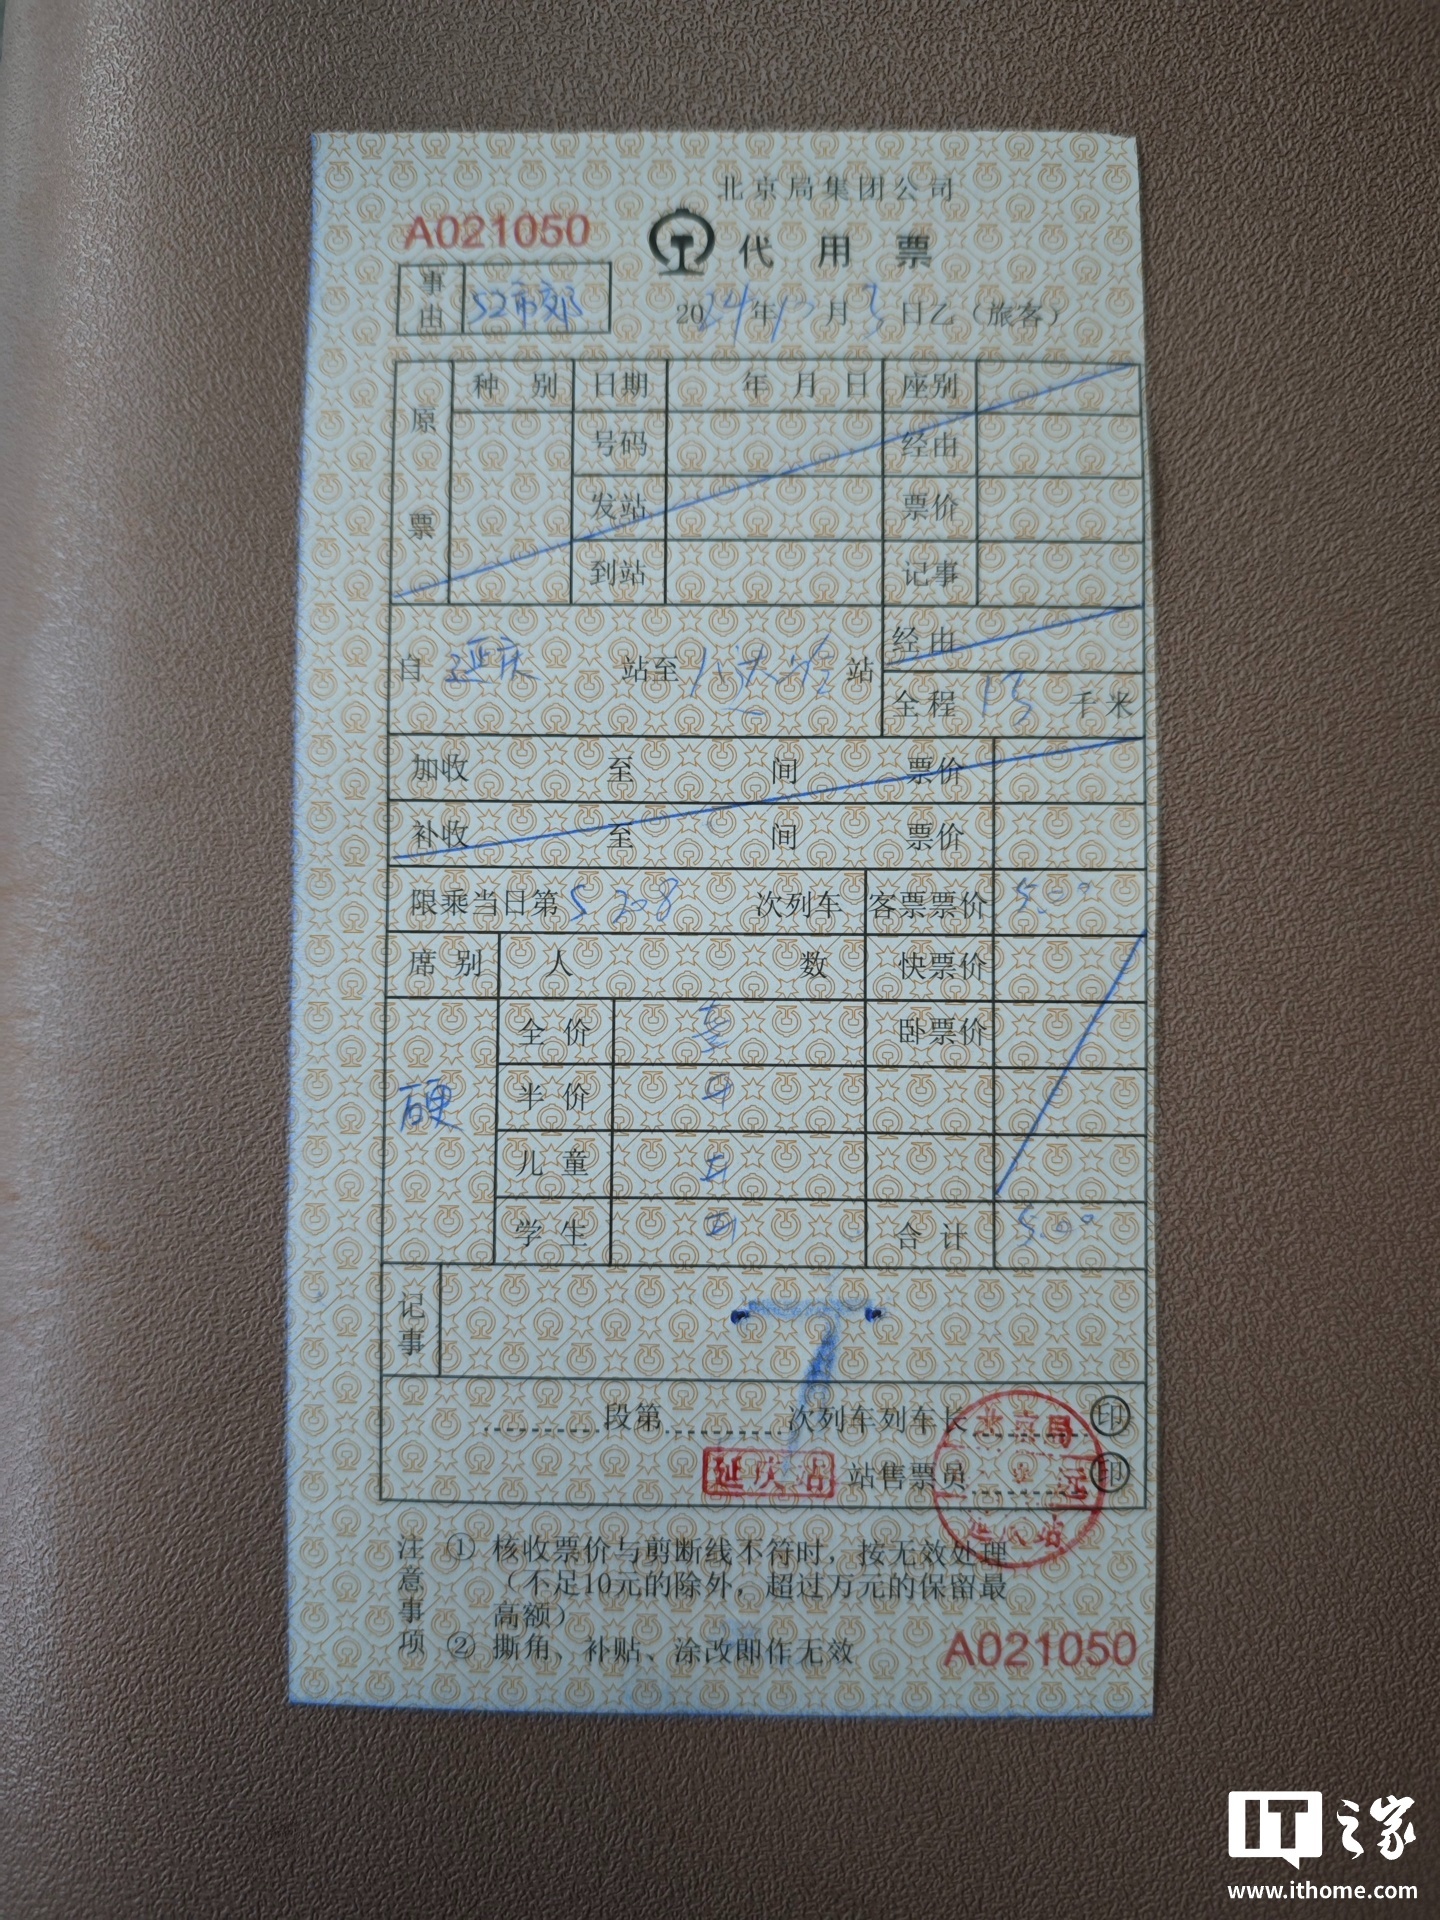 北京局集团公司
A021050
代用票
事由 S2市郊
2024年 月3日乙（旅客）
原票 种别 日期 年月日 座别
号码 经由
发站 票价
到站 记事
自 延庆 站至 八达岭 站 经由
全程 13 千米
加收 至 间 票价
补收 至 间 票价
限乘当日第 S208 次列车 客票票价 5.00
席别 人数 快票价
硬 全价 壹 卧票价
半价
儿童
学生 合计 5.00
记事
段第 次列车列车长 印
延庆站 站售票员 印
注意事项 ① 核收票价与剪断线不符时，按无效处理
（不足10元的除外，超过万元的保留最
高额）
② 撕角、补贴、涂改即作无效
A021050
IT之家
www.ithome.com